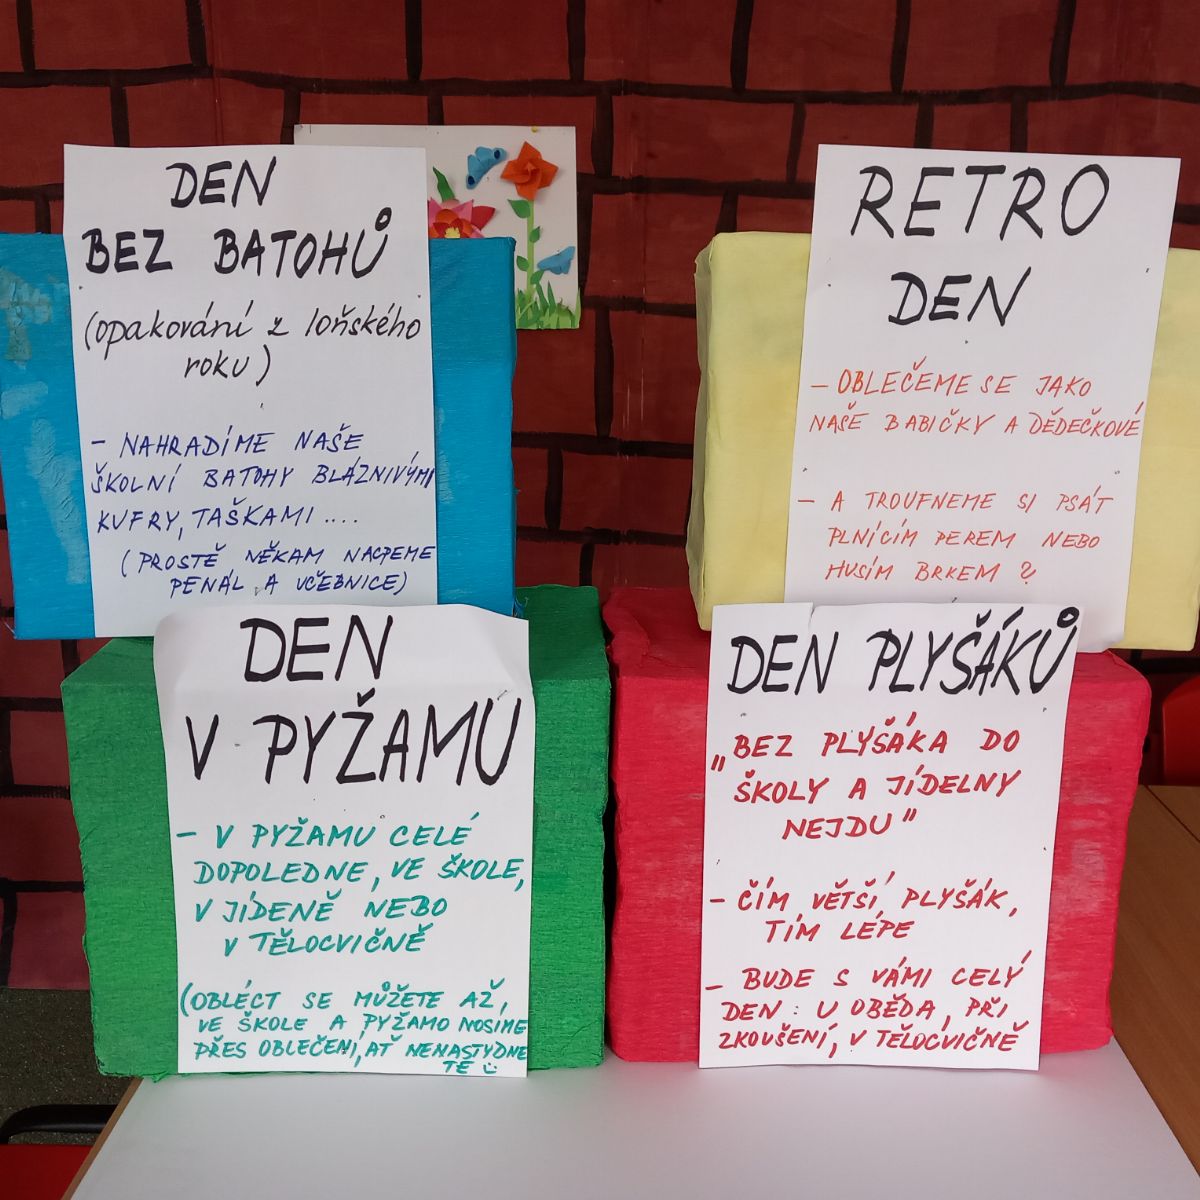 DEN
BEZ BATOHŮ
(opakování z loňského
roku)
- NAHRADÍME NAŠE
ŠKOLNÍ BATOHY BLÁZNIVÝMI
KUFRY, TAŠKAMI ....
(PROSTĚ NĚKAM NACPEME
PENÁL A UČEBNICE)
RETRO
DEN
- OBLEČEME SE JAKO
NAŠE BABIČKY A DĚDEČKOVÉ
- A TROUFNEME SI PSÁT
PLNÍCÍM PEREM NEBO
HUSÍM BRKEM ?
DEN
V PYŽAMU
- V PYŽAMU CELÉ
DOPOLEDNE, VE ŠKOLE,
V JÍDENĚ NEBO
V TĚLOCVIČNĚ
(OBLÉCT SE MŮŽETE AŽ,
VE ŠKOLE A PYŽAMO NOSÍME
PŘES OBLEČENÍ, AŤ NENASTYDNE
TE ☺
DEN PLYŠÁKŮ
„BEZ PLYŠÁKA DO
ŠKOLY A JÍDELNY
NEJDU"
- ČÍM VĚTŠÍ PLYŠÁK,
TÍM LÉPE
- BUDE S VÁMI CELÝ
DEN: U OBĚDA, PŘI
ZKOUŠENÍ, V TĚLOCVIČNĚ